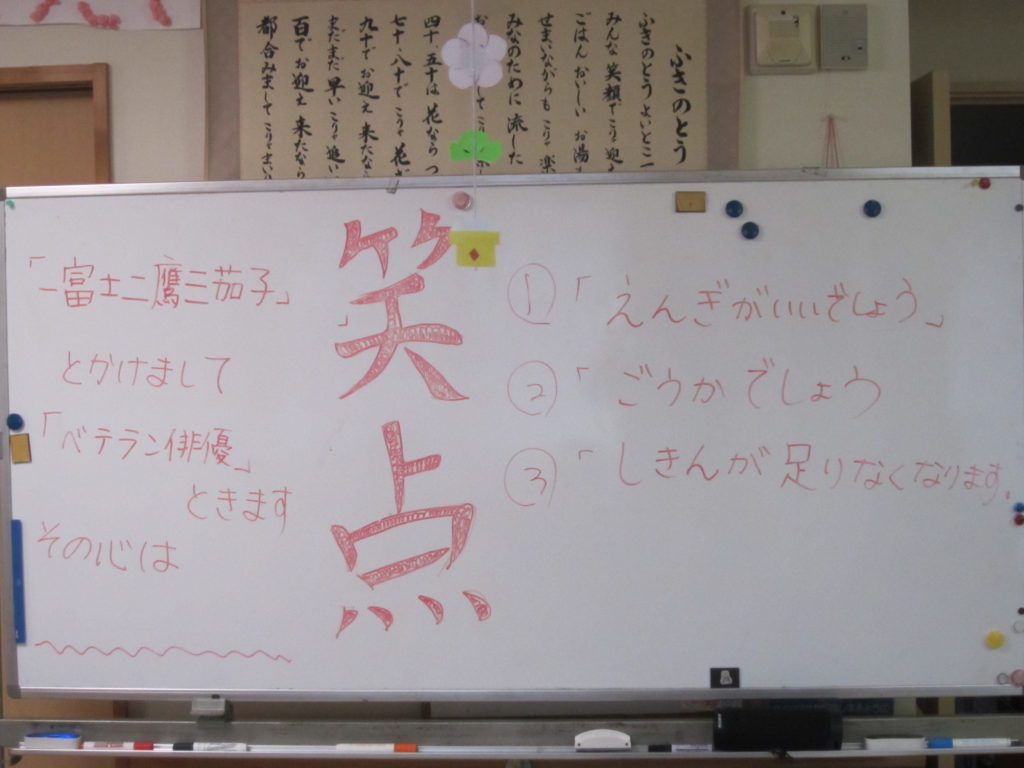 ふきのとう
ふきのとうよいとこ
みんな笑顔でこりゃ迎
ごはんおいしいお湯
せまいながらもこりゃ楽
みなのために流した
四十五十は花ならつ
七十、八十でこりゃ花
九十でお迎え来たな
まだまだ早いこりゃ追い
百でお迎え来たなら
都合みましてこりゃまい
笑点
「一富士二鷹三茄子」
とかけまして
「ベテラン俳優」
ときます
その心は
①「えんぎがいいでしょう」
②「ごうかでしょう
③「しきんが足りなくなります。